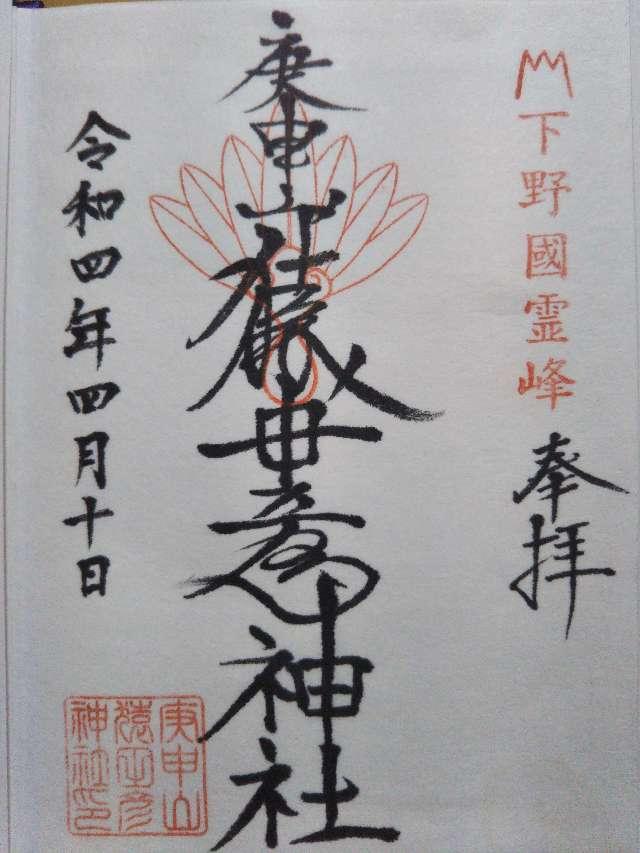 下野國霊峰
奉拝
庚申山猿田彦神社
令和四年四月十日
庚申山
猿田彦
神社印